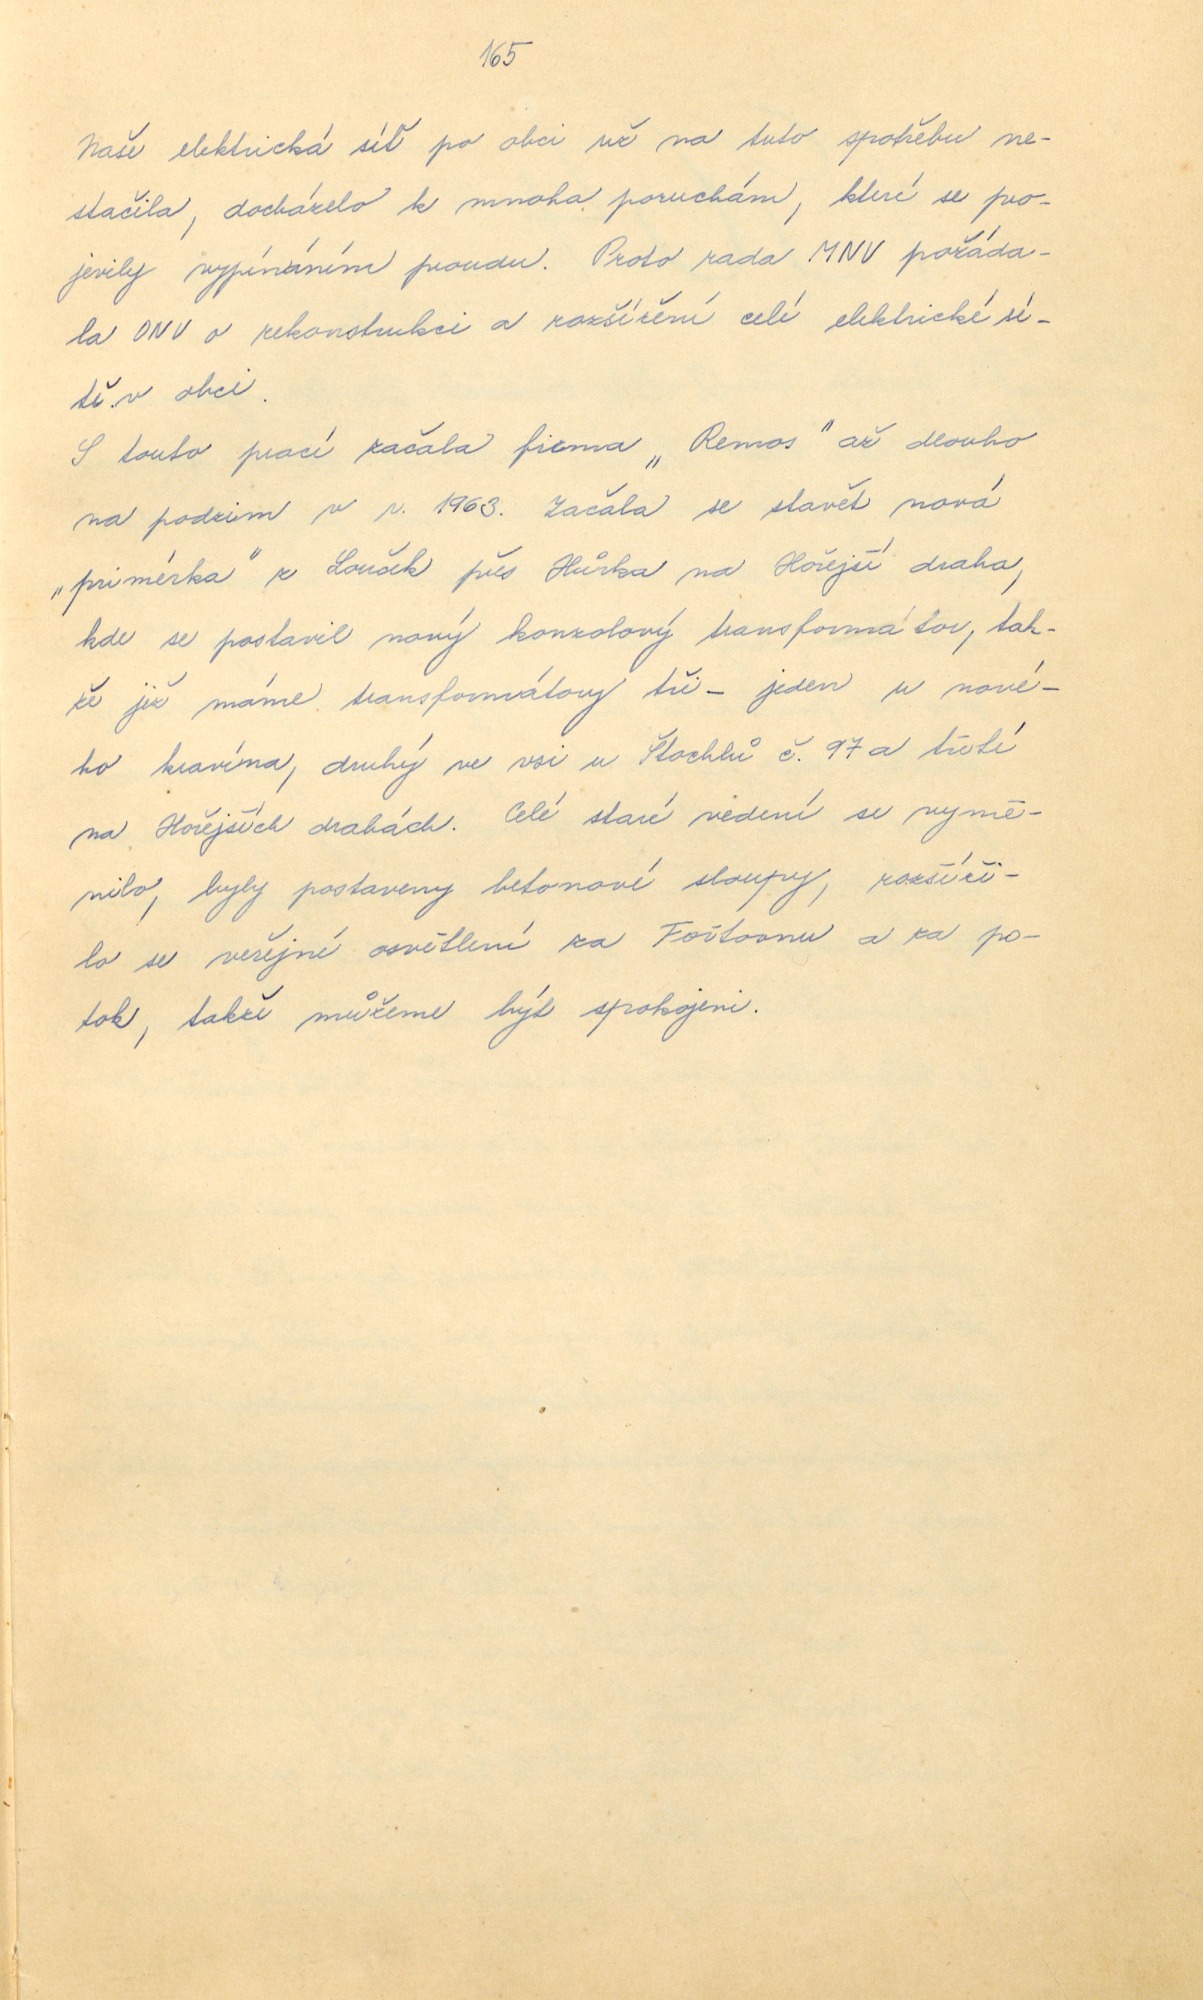 165
Naše elektrická síť po obci už na tuto spotřebu ne-
stačila, docházelo k mnoha poruchám, které se pro-
jevily vypínáním proudu. Proto rada MNV požáda-
la ONV o rekonstrukci a rozšíření celé elektrické sí-
tě v obci.
S touto prací začala firma „Remos" až dlouho
na podzim v r. 1963. Začala se stavět nová
„primérka" z Louček přes Hůrka na Hořejší draha,
kde se postavil nový konzolový transformátor, tak-
že již máme transformátory tři – jeden u nové-
ho kravína, druhý ve vsi u Štochlů č. 97 a třetí
na Hořejších drahách. Celé staré vedení se vymě-
nilo, byly postaveny betonové sloupy, rozšíři-
lo se veřejné osvětlení za Foštovnu a za po-
tok, takže můžeme být spokojeni.